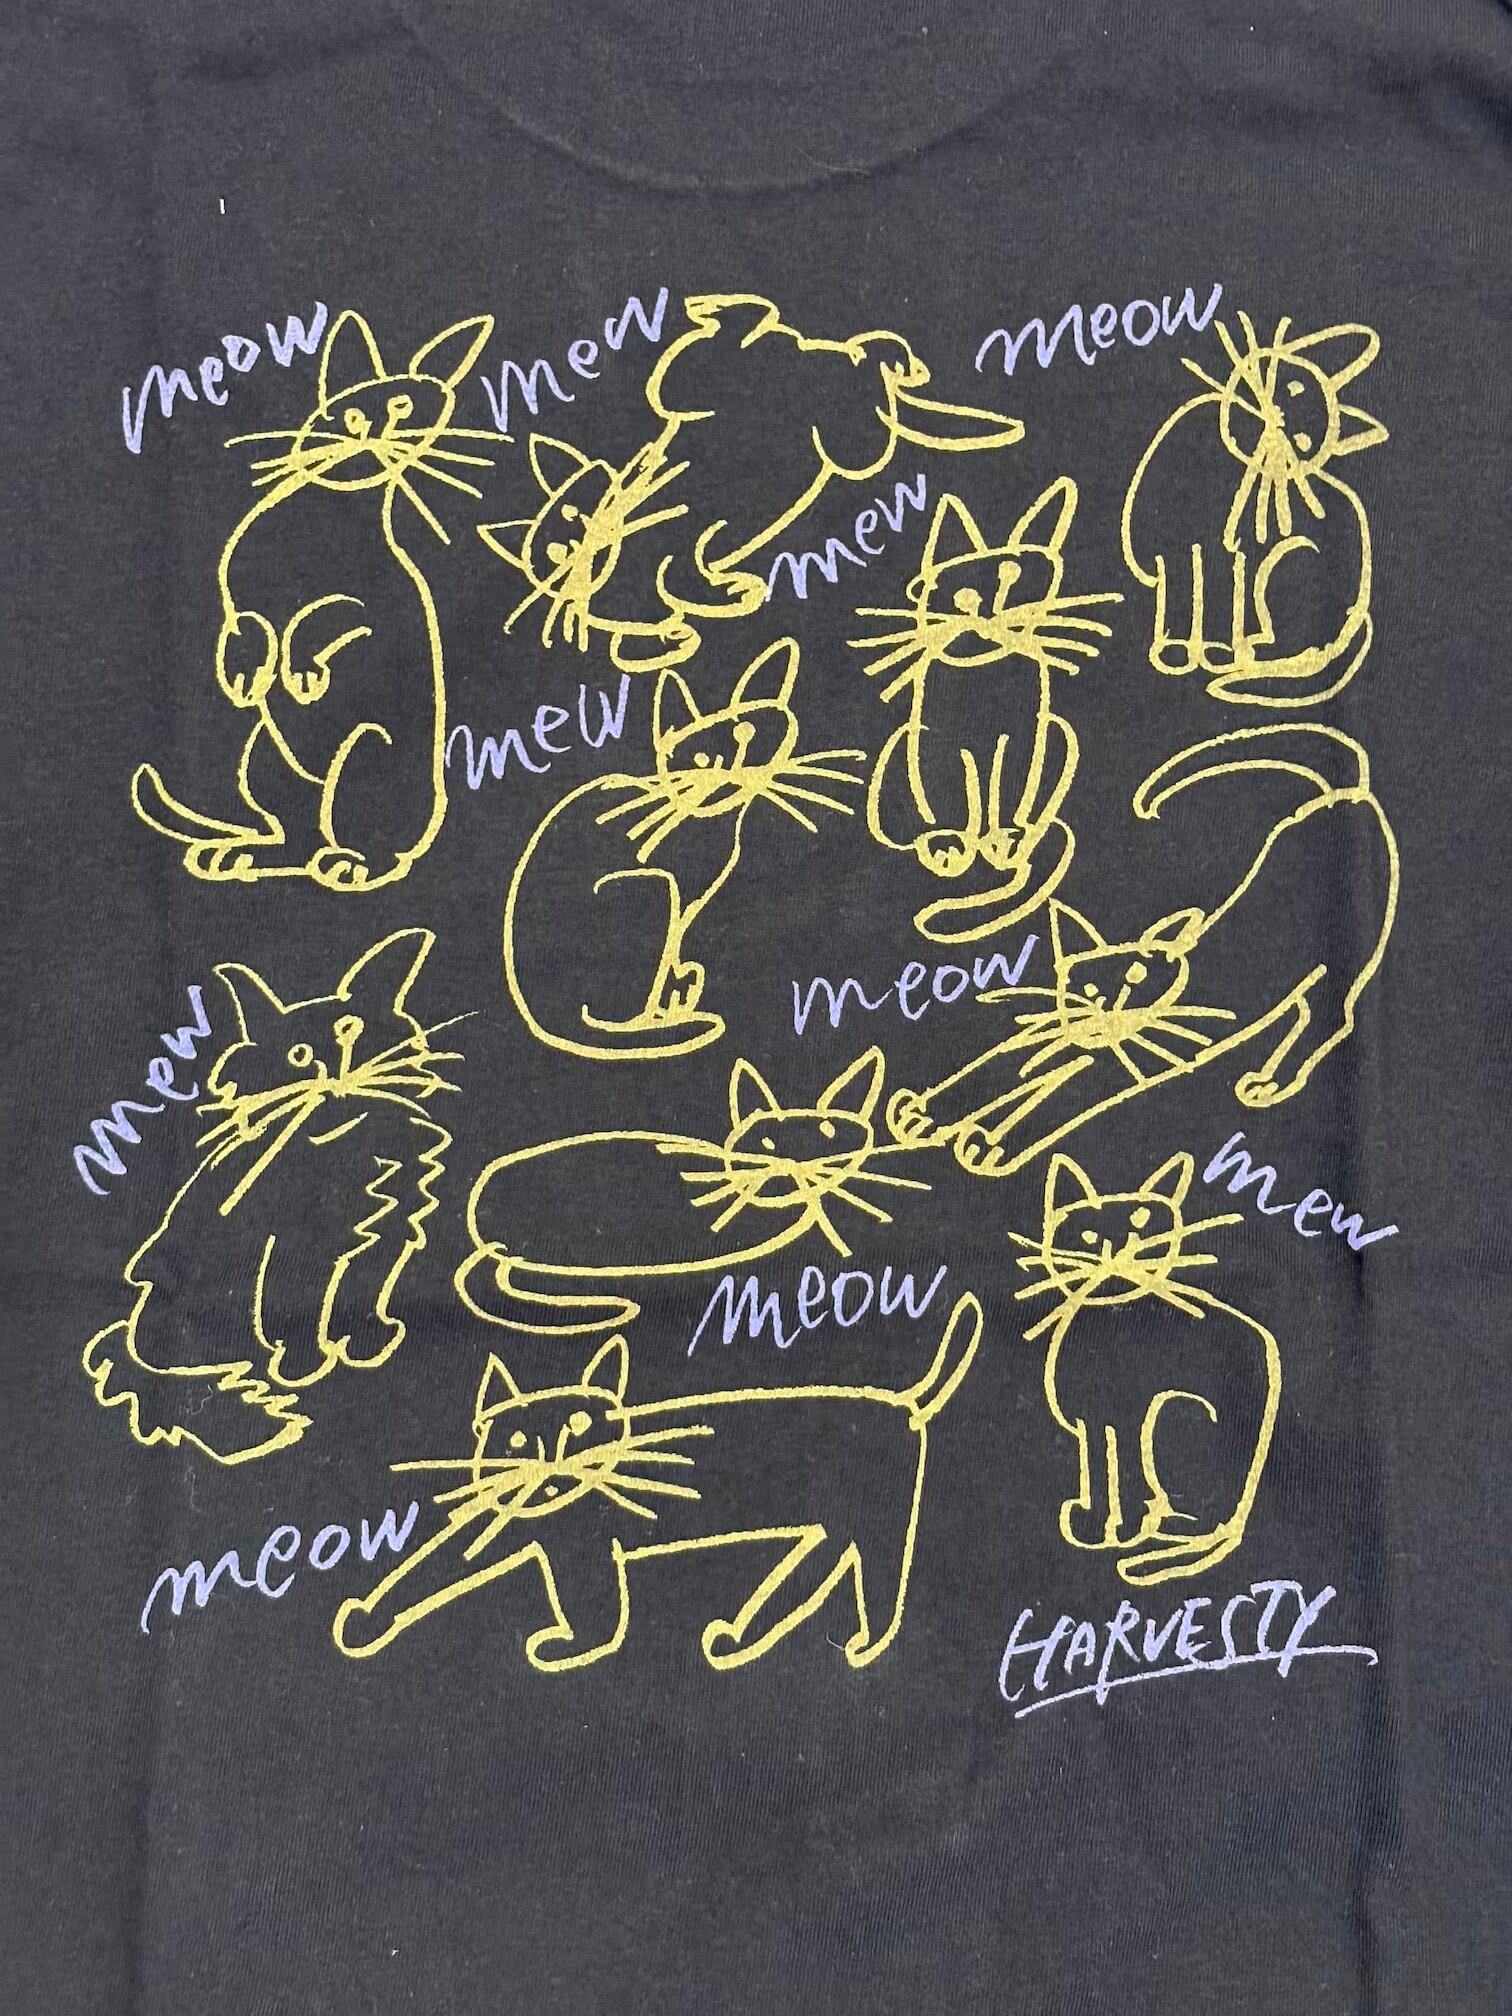 meow
mew
meow
mew
mew
meow
mew
mew
meow
meow
HARVESTY